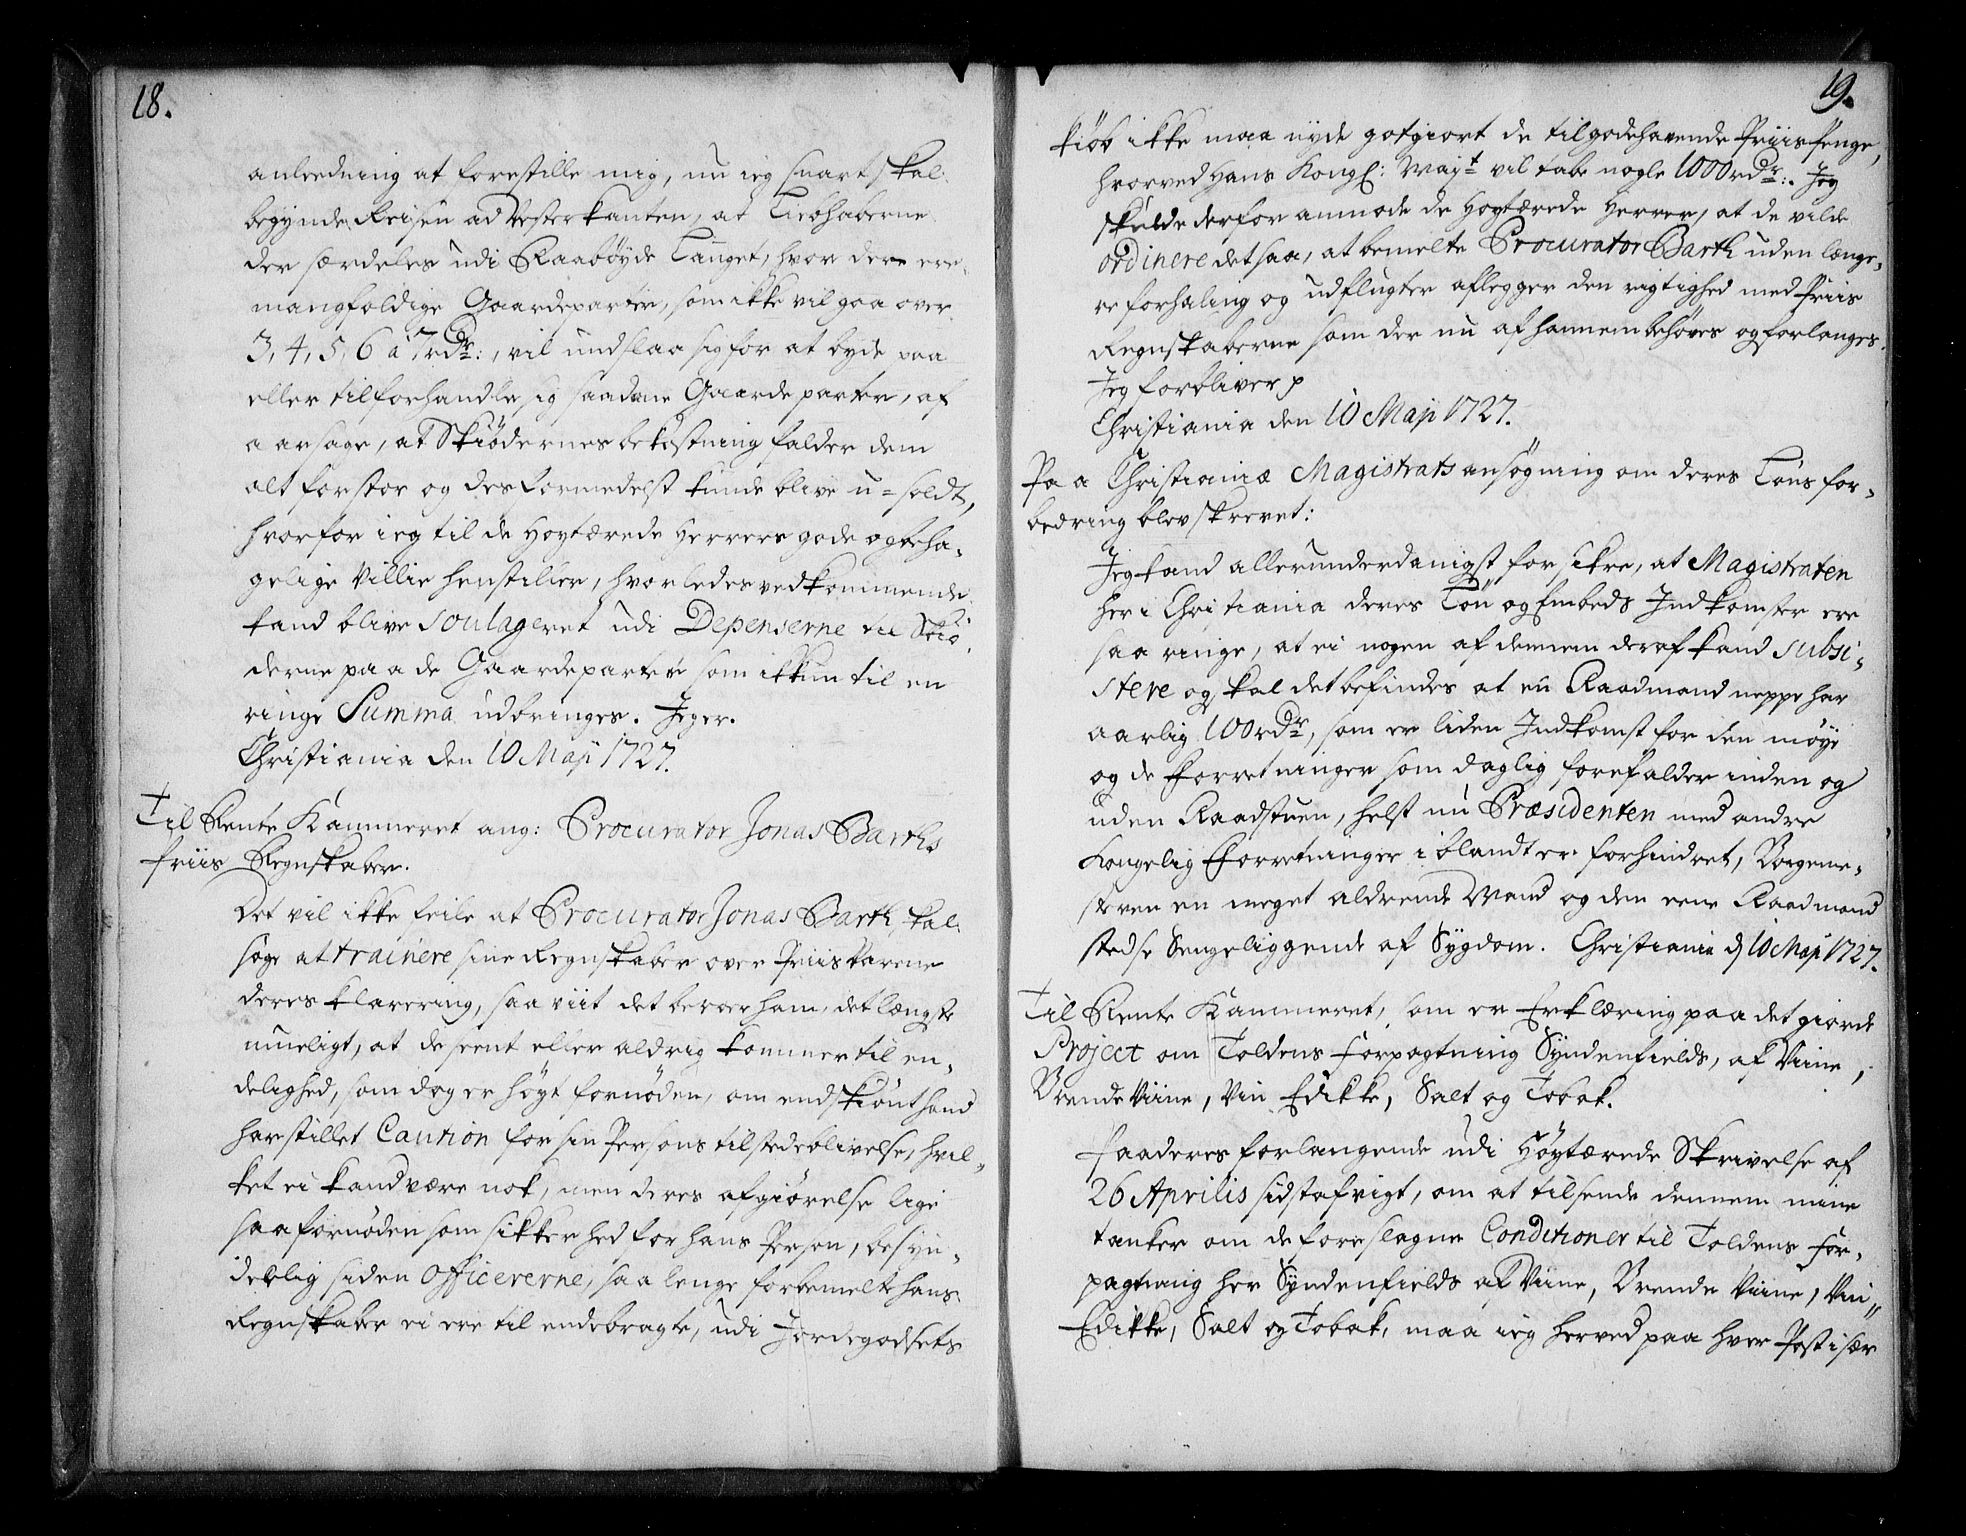 18.
anleedning at forestille mig, nu ieg snart skal
begynde Reisen ad Vesterkanten, at Liebhaberne
der særdeles udi Raaböyde Lauget, hvor der ere
mangfoldige Gaardeparter, som ikke vil gaa over
3, 4, 5, 6 à 7 rdr:, vil undslaa sig for at byde paa
eller tilforhandle sig saadane Gaardeparter, af
aarsage, at Skiödernes bekostning falder dem
alt for stor og desformedelst kunde blive u-soldt,
hvorfor ieg til de Høytærede Herrers gode og beha-
gelige Villie henstiller, hvorledes vedkommende
kand blive soulageret udi Depenserne til Skiö-
derne paa de Gaardeparter som ikkun til en
ringe Summa udbringes. Jeg er.
Christiania den 10 Maji 1727.
Til Rente Kammeret ang: Procurator Jonas Barths
Priis Regnskaber.
Det vil ikke feile at Procurator Jonas Barth skal
søge at trainere sine Regnskaber over Priis Varene
deres klarering, saa viit det beroer ham, det længste
mueligt, at de seent eller aldrig kommer til en-
delighed, som dog er høyt fornöden, om endskiönt hand
har stillet Caution for sin Persons tilstedeblivelse, hvil-
ket ei kand være nok, men deres afgiörelse lige
saa fornöden som sikkerhed for hans Person, besyn-
derlig siden Officererne, saa lenge forbemelte hans
Regnskaber ei ere til endebragte, udi Jordegodsets
19.
kiöb ikke maa nyde gotgiort de tilgodehavende Priisfenge,
hvorved Hans Kongl: Mayt vil tabe nogle 1000 rdr:. Jeg
skulde derfor anmode de Høytærede Herrer, at de vilde
ordinere det saa, at bemelte Procurator Barth uden længe-
re forhaling og udflugter aflegger den rigtighed med Priis
Regnskaberne som der nu af hannem behöves og forlanges.
Jeg forbliver p
Christiania den 10 Maji 1727.
Paa Christianiæ Magistrats ansögning om deres Löns for-
bedring blev skrevet:
Jeg kand allerunderdanigst forsikre, at Magistraten
her i Christiania deres Lön og Embeds Indkomster ere
saa ringe, at ei nogen af dennem deraf kand subsi-
stere og skal det befindes at en Raadmand neppe har
aarlig 100 rdr, som er liden Indkomst for den möye
og de Forretninger som daglig forefalder inden og
uden Raadstuen, helst nu Præsidenten med andre
Kongelig Forretninger iblandt er forhindret, Borgeme-
steren en meget aldrende Mand og den eene Raadmand
stedse Sengeliggende af Sygdom. Christiania d 10 Maji 1727.
Til Rente Kammeret, som er Erklæring paa det giorde
Project om Toldens Forpagtning Syndenfields, af Viine,
Brende Viine, Vin Edikke, Salt og Tobak.
Paa deres forlangende udi Høytærede Skrivelse af
26 Aprilis sidstafvigt, om at tilsende dennem mine
tanker om de foreslagne Conditioner til Toldens For-
pagtning her Syndenfields af Viine, Brende Viine, Vin
Edikke, Salt og Tobak, maa ieg herved paa hver Post især